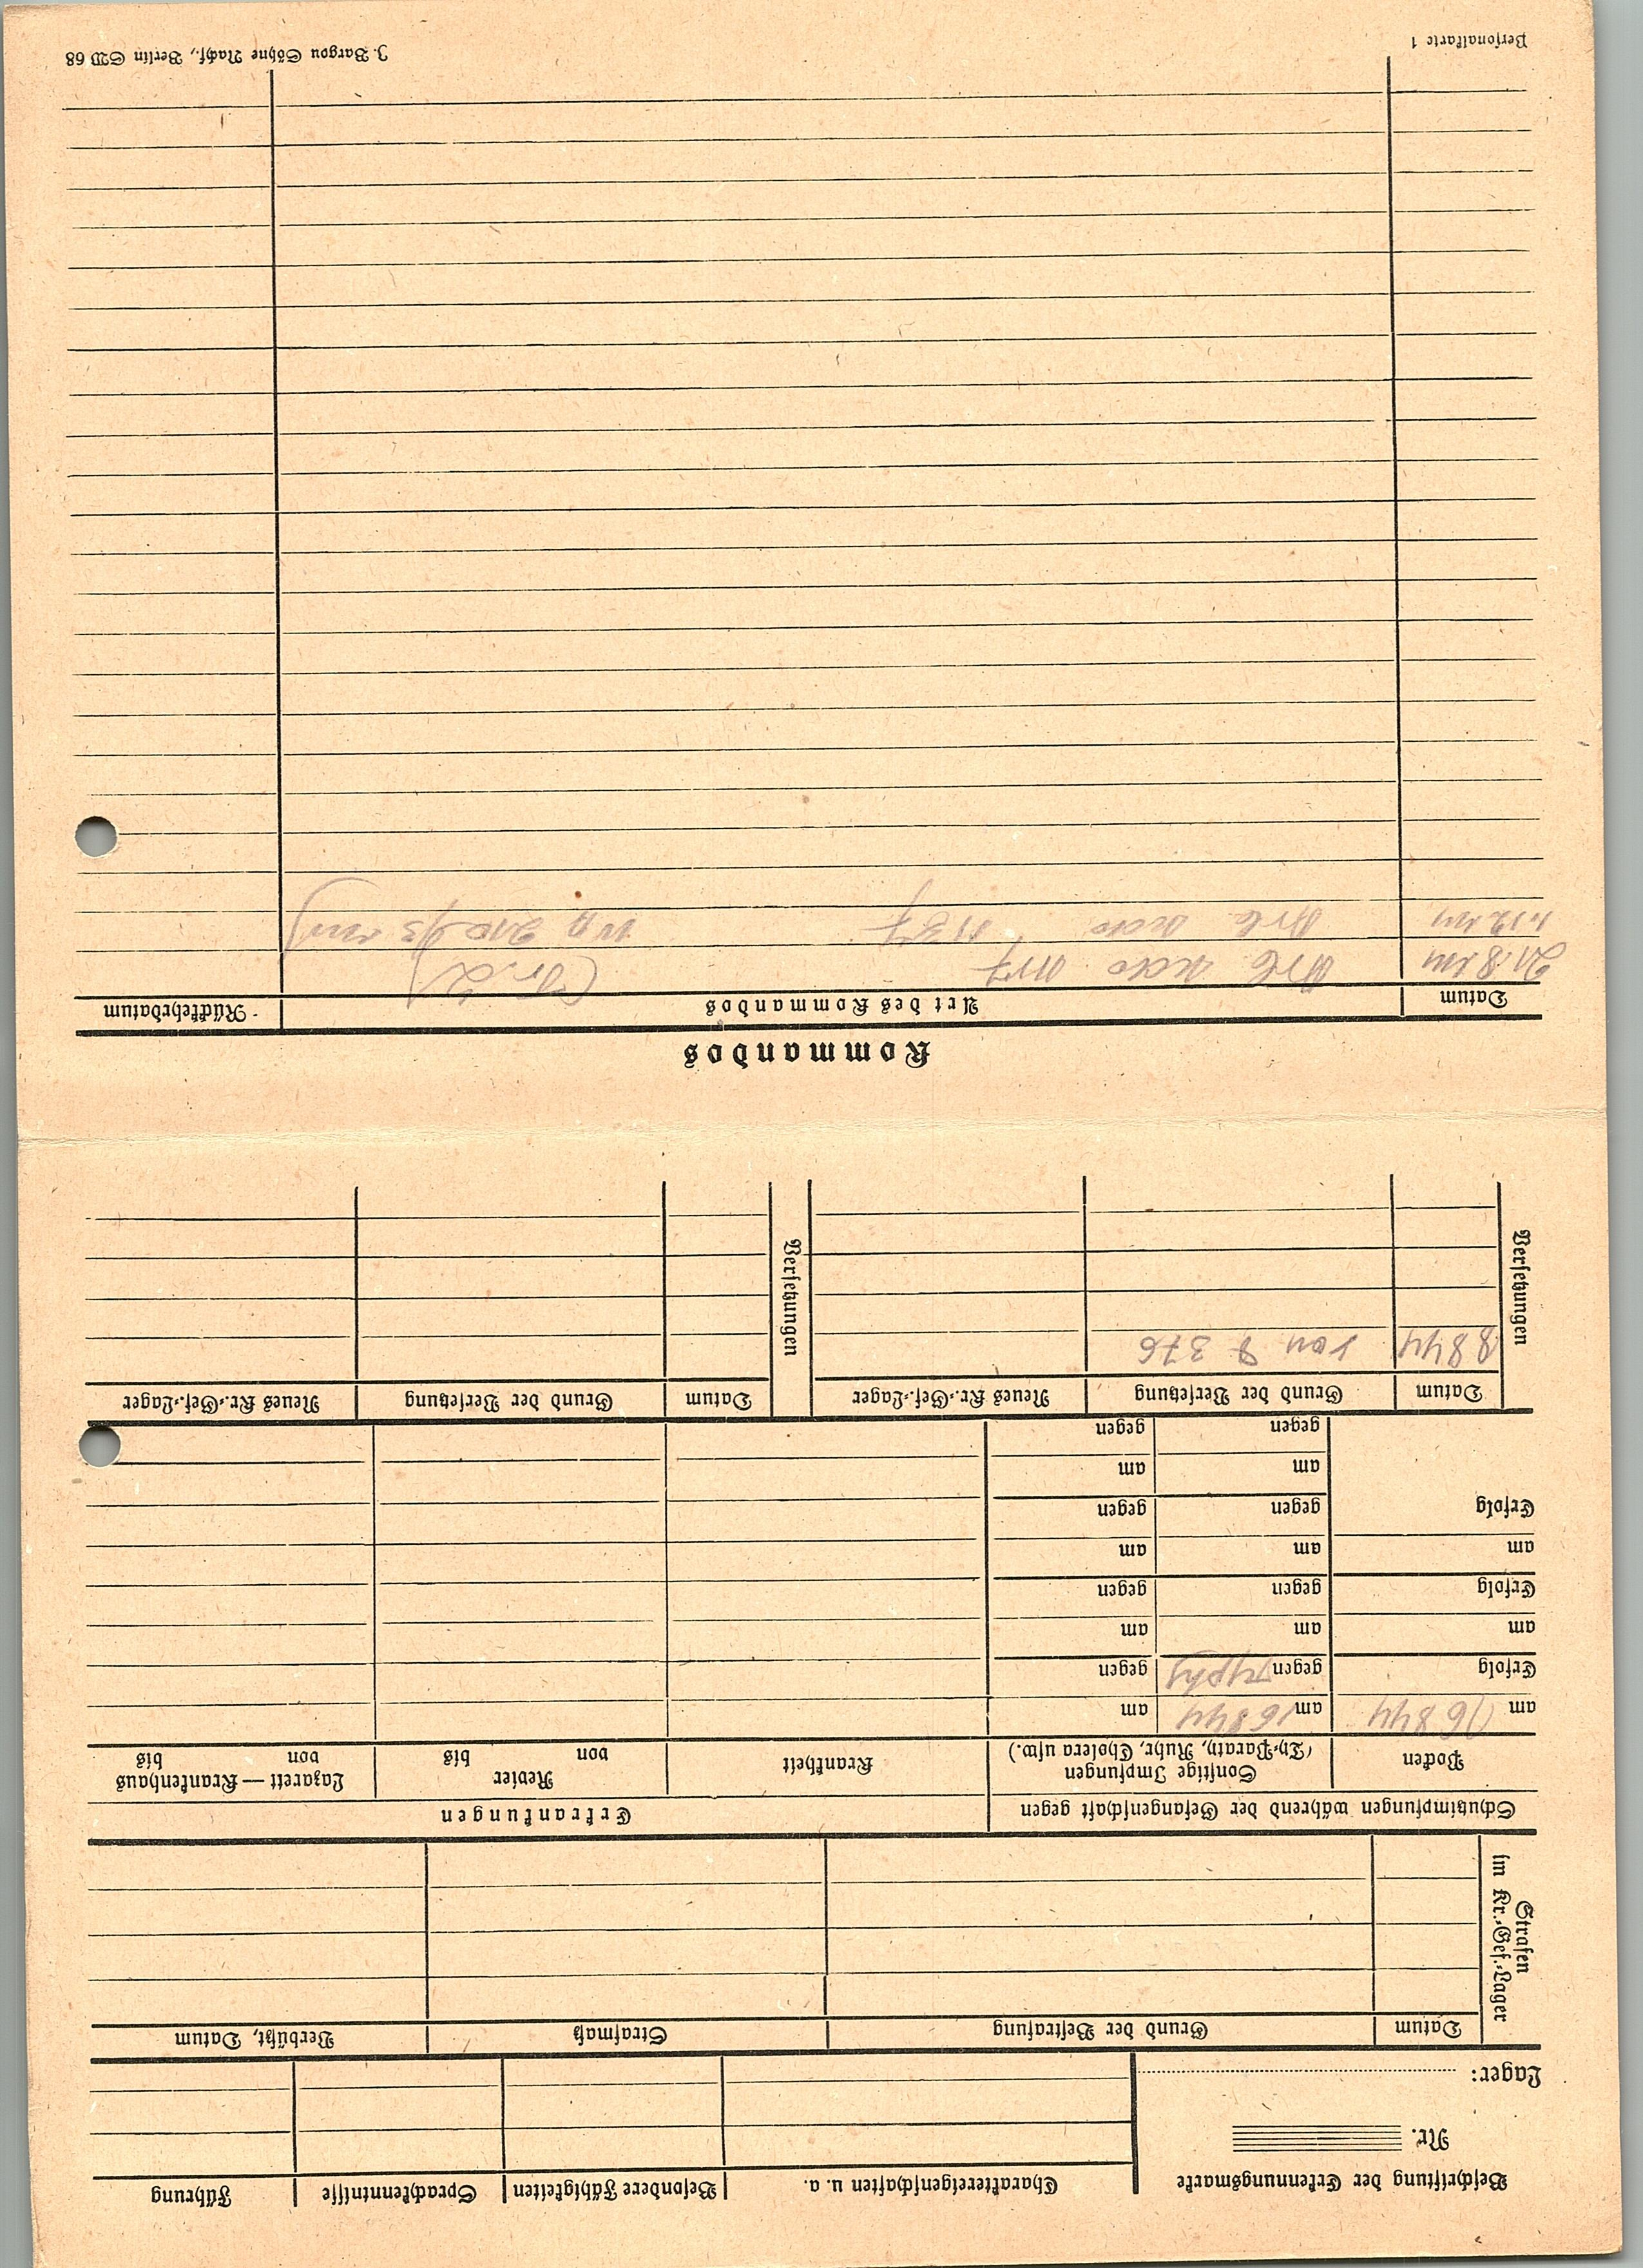 Beschriftung der Erkennungsmarke
Nr.
Lager:
Charaktereigenschaften u. a. Besondere Fähigkeiten Sprachkenntnisse Führung
Strafen
im Kr.-Gef.-Lager
Datum Grund der Bestrafung Strafmaß Verbüßt, Datum
Schutzimpfungen während der Gefangenschaft gegen Erkrankungen
Pocken Sonstige Impfungen Krankheit Revier Lazarett — Krankenhaus
(Th.-Parath, Ruhr, Cholera usw.) von bis von bis
am 16 8 44 am 16 8 44 am
Erfolg gegen Typhy gegen
am am am
Erfolg gegen gegen
am am am
Erfolg gegen gegen
am am
gegen gegen
Versetzungen
Datum Grund der Versetzung Neues Kr.-Gef.-Lager
8 8 44 von 376
Versetzungen
Datum Grund der Versetzung Neues Kr.-Gef.-Lager
Kommandos
Datum Art des Kommandos Rückkehrdatum
21.8.44 Arb
1.12.44 Arb
Personalkarte 1 J. Bargou Söhne Nachf., Berlin SW 68